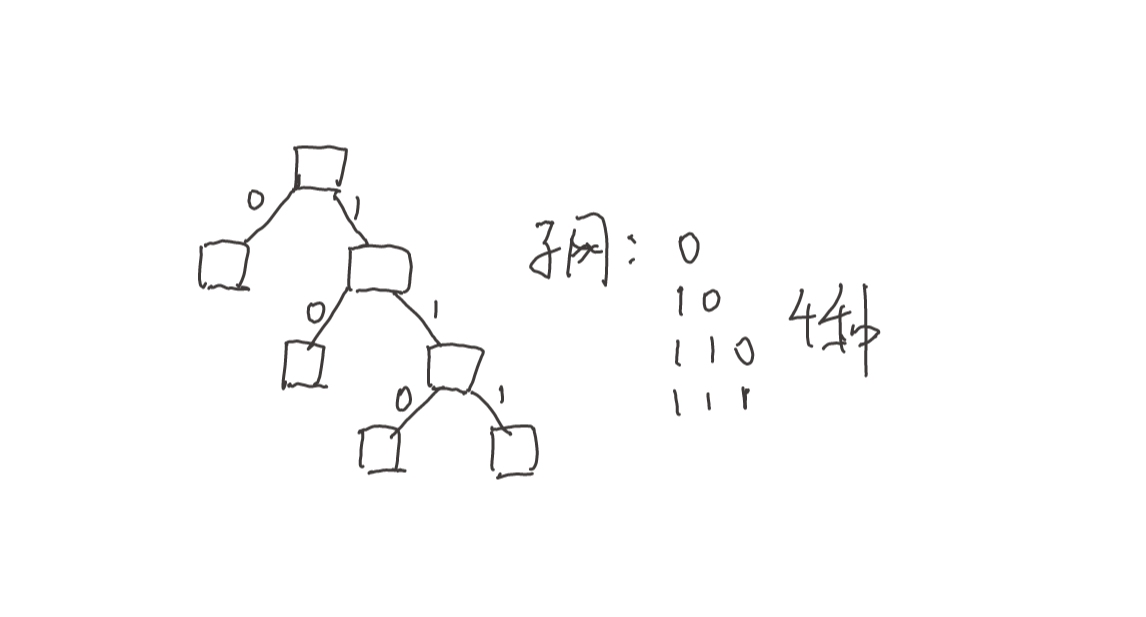 0 1
0 1
0 1
子网: 0
10
110
111
4种